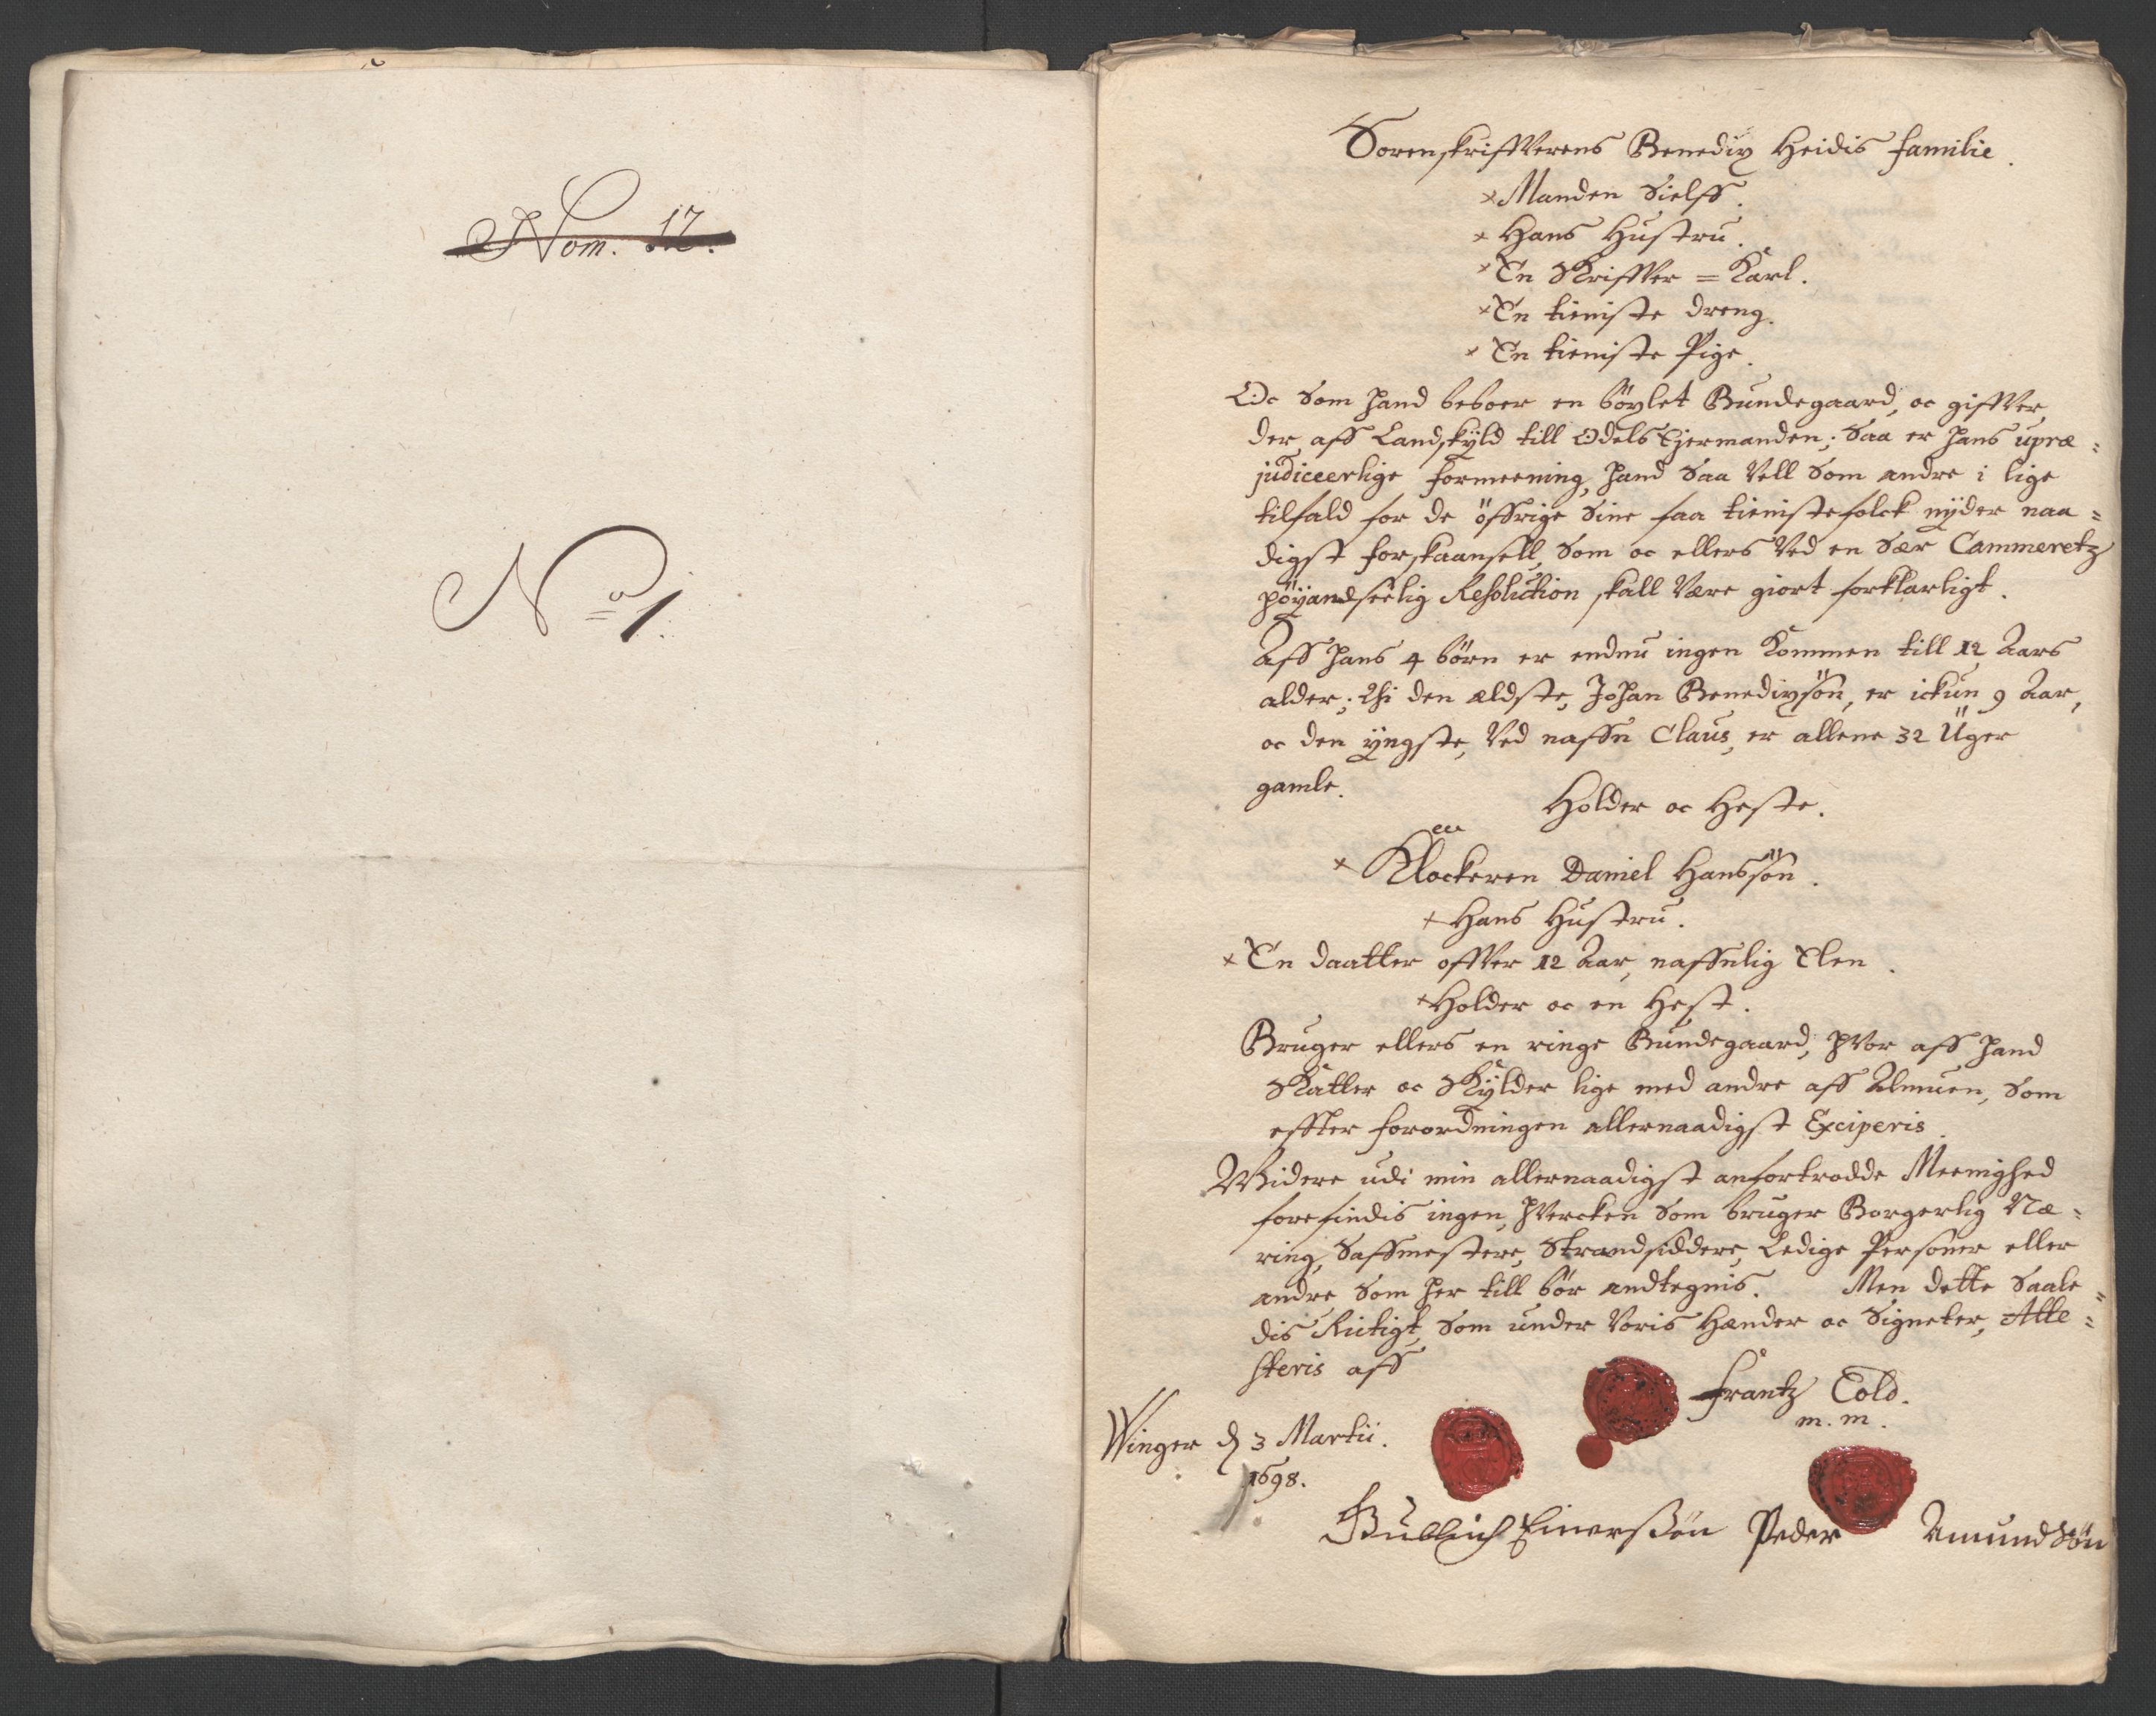 Nom. 12.
No 1.
Sorenskrifverens Benedix Heidis familie.
× Manden Sielff.
× Hans Hustru.
× En Skrifver = Karl.
× En tieniste dreng.
× En tieniste Pige.
Oc som hand beboer en böylet Bundegaard, oc gifver,
der aff Landskyld till Odels Ejermanden; Saa er hans upræ=
judiceerlige formeening, hand saa vell som andre i lige
tilfald for de öffrige sine faa tienistefolck nyder naa=
digst forskaansell, som oc ellers ved en sær Cammeretz
höyandseelig Resolution skall være giort forklarligt.
Aff hans 4 börn er endnu ingen kommen till 12 Aars
alder; thi den ældste, Johan Benedixsön, er ickun 9 Aar,
oc den yngste, ved naffn Claus, er allene 32 Uger
gamle.
Holder oc Heste.
× Klockeren Daniel Hanssön.
× Hans Hustru.
× En daatter ofver 12 Aar, naffnlig Elen.
× Holder oc en Hest.
Bruger ellers en ringe Bundegaard, hvor aff hand
Skatter oc Skylder lige med andre aff Almuen, som
effter forordningen allernaadigst Exciperis.
Widere udi min allernaadigst anfortrodde Meenighed
forefindis ingen, hvercken som bruger Borgerlig Næ=
ring, Saffmestere, Strandsiddere, Ledige Personer eller
andre som her till bör andtegnis. Men dette saale=
dis Rictigt, som under voris Hænder oc Signeter, Atte=
steris aff
Frantz Cold.
m. m.
Winger d 3 Martii.
1698.
Gulbrich Einersßön Peder Amundsön